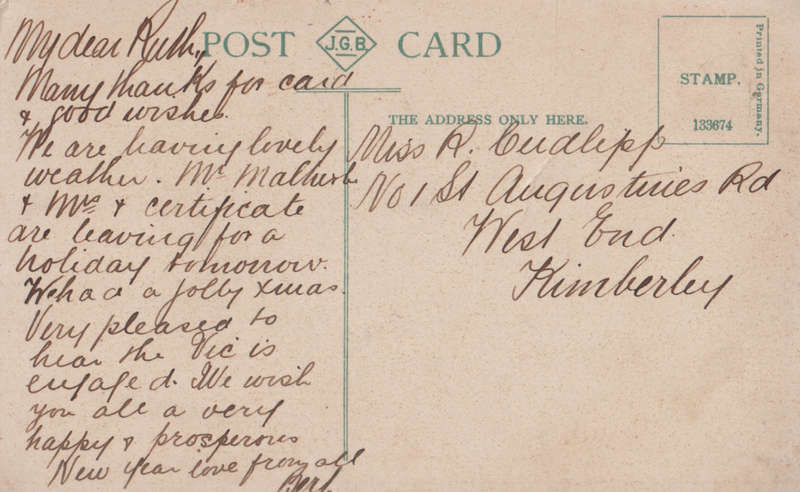 POST J.G.B. CARD
THE ADDRESS ONLY HERE.
STAMP.
133674
Printed in Germany.
My dear Ruth,
Many thanks for card
& good wishes.
We are having lovely
weather. Mr Malherbe
& Mrs & certificate
are leaving for a
holiday tomorrow.
We had a jolly xmas.
Very pleased to
hear the Vic is
engaged. We wish
you all a very
happy & prosperous
New Year love from all
Miss R. Cudlipp
No 1 St Augustines Rd
West End.
Kimberley